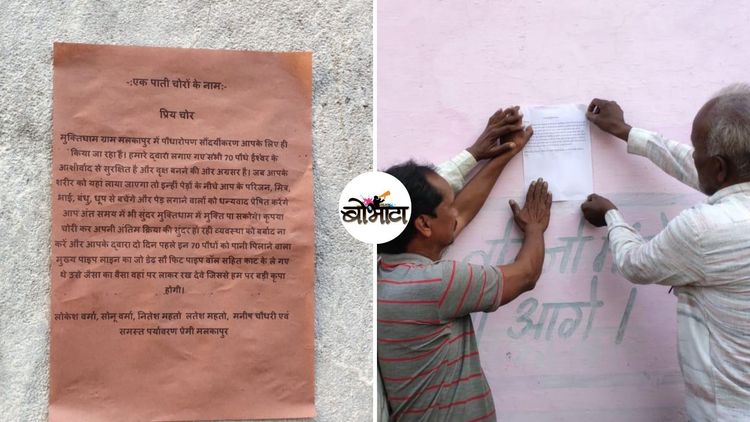 -:एक पाती चोरों के नाम:-
प्रिय चोर
मुक्तिधाम ग्राम मलकापुर में पौधारोपण सौंदर्यीकरण आपके लिए ही
किया जा रहा हैं। हमारे द्वारा लगाए गए सभी 70 पौधे ईश्वर के
आशीर्वाद से सुरक्षित है और वृक्ष बनने की ओर अग्रसर है। जब आपके
शरीर को यहां लाया जाएगा तो इन्हीं पेड़ों के नीचे आप के परिजन, मित्र,
भाई, बंधु, धूप से बचेंगे और पेड़ लगाने वालों को धन्यवाद प्रेषित करेंगे
आप अंत समय में भी सुंदर मुक्तिधाम में मुक्ति पा सकोगे। कृपया
चोरी कर अपनी अंतिम क्रिया की सुंदर हो रही व्यवस्था को बर्बाद ना
करें और आपके द्वारा दो दिन पहले इन 70 पौधों को पानी पिलाने वाला
मुख्य पाइप लाइन का जो डेढ़ सौ फिट पाइप वॉल सहित काट के ले गए
थे उसे जैसा का वैसा वहां पर लाकर रख देवें जिससे हम पर बड़ी कृपा
होगी।
लोकेश वर्मा, सोनू वर्मा, नितेश महतो लतेश महतो, मनीष चौधरी एवं
समस्त पर्यावरण प्रेमी मलकापुर
बोभाटा
आगे।